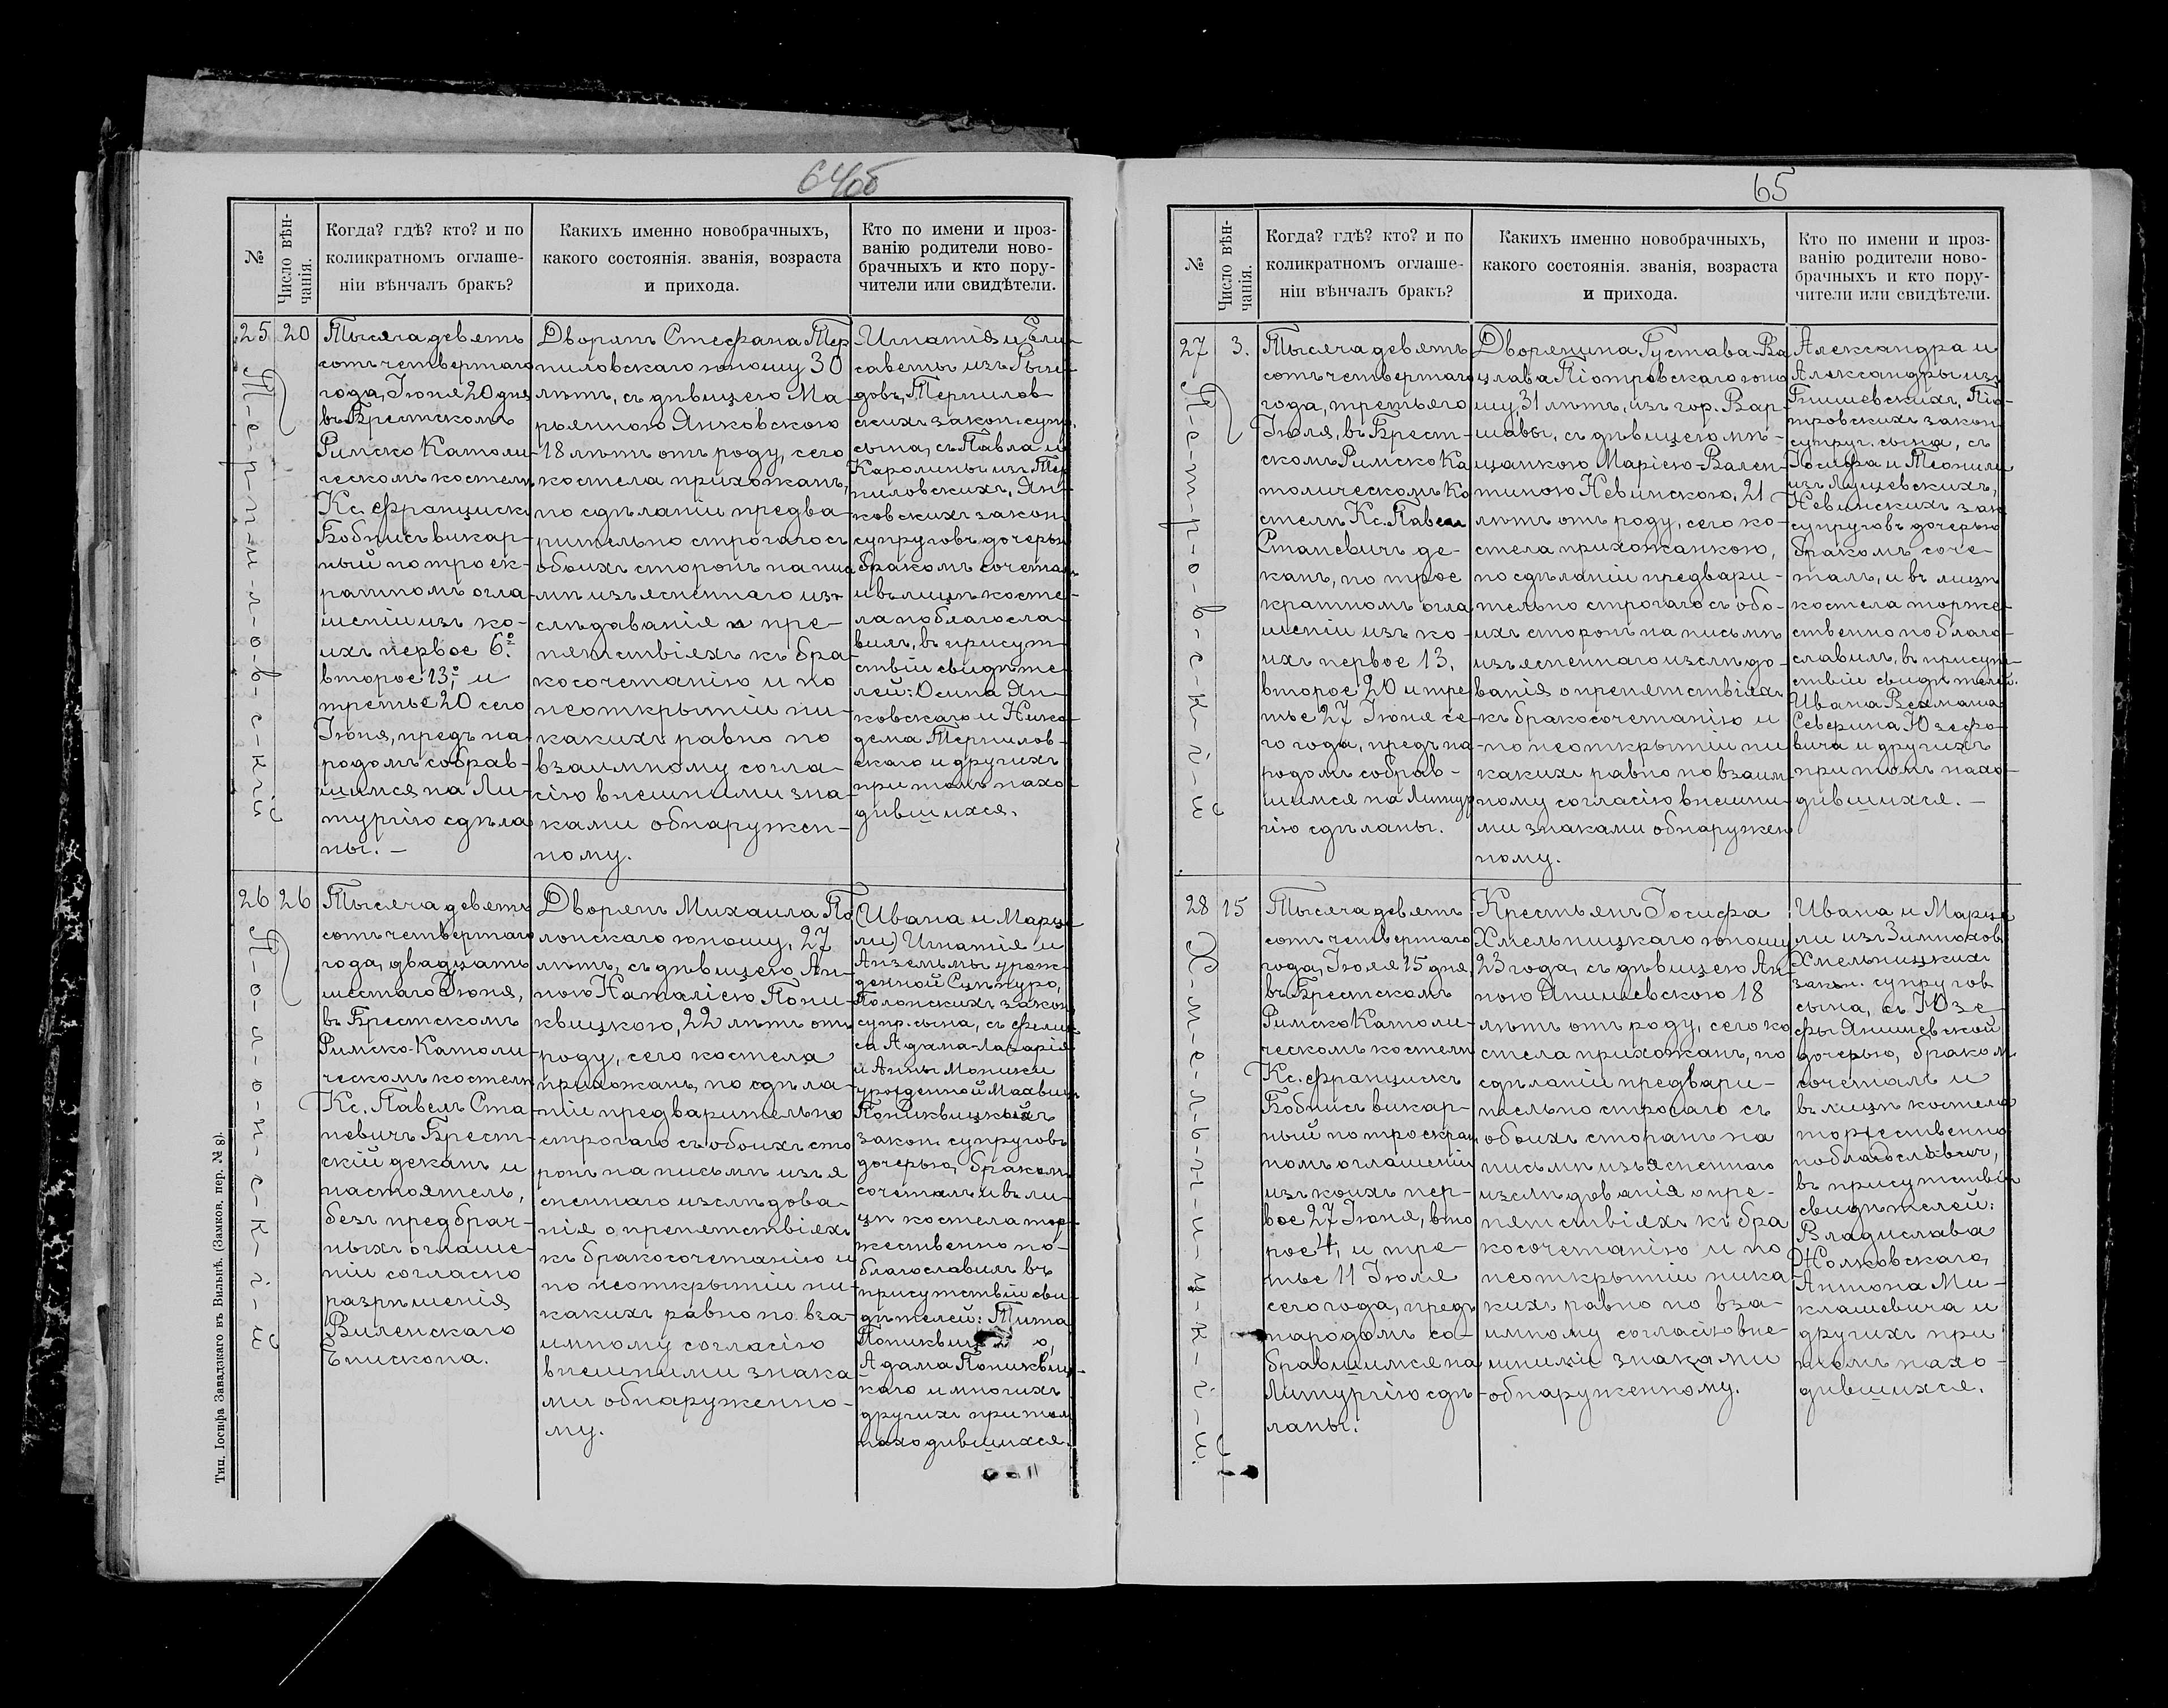 64об
№
Число вѣн-
чанія.
Когда? гдѣ? кто? и по
коликратномъ оглаше-
ніи вѣнчалъ бракъ?
Какихъ именно новобрачныхъ,
какого состоянія. званія, возраста
и прихода.
Кто по имени и проз-
ванію родители ново-
брачныхъ и кто пору-
чители или свидѣтели.
25
20
Т-е-р-п-и-л-о-в-с-кій
Тысяча девять
сотъ четвертаго
года, Іюня 20 дня
въ Брестскомъ
Римско Католи-
ческомъ костелѣ
Кс. Францискъ
Бобнисъ викар-
ный по троек-
ратномъ огла-
шеніи изъ ко-
ихъ первое 6º
второе 13º, и
третье 20 сего
Іюня, предъ на-
родомъ собрав-
шимся на Ли-
тургію сдѣла
ны. —
Дворянъ Стефана Тер
пиловскаго юношу 30
лѣтъ, съ дѣвицею Ма-
рьянною Янковскою
18 лѣтъ отъ роду, сего
костела прихожанъ,
по сдѣланіи предва-
рительно строгаго съ
обоихъ сторонъ на пис
мѣ изъясненнаго из-
слѣдаванія о пре-
пятствіяхъ къ бра-
косочетанію и по
неоткрытіи ни-
какихъ равно по
взаимному согла-
сію внешними зна-
ками обнаружен-
ному.
Игнатія и Ели-
саветы изъ
довъ, Терпилов-
скихъ закон. супр.
сына, съ Павла и
Каролины изъ Тер
пиловскихъ, Ян-
ковскихъ закон.
супруговъ дочерью
бракомъ сочеталъ
и въ лицѣ косте-
ла поблагосла-
вилъ, въ присут-
ствіи свидѣте-
лей: Осипа Ян-
ковскаго и Нико-
дема Терпилов-
скаго и другихъ
при томъ нахо-
дившихся.
26
26
П-о-л-о-н-с-к-і-й
Тысяча девять
сотъ четвертаго
года, двадцать
шестаго Іюня,
въ Брестскомъ
Римско-Католи-
ческомъ костелѣ
Кс. Павелъ Ста
невичъ Брест-
скій деканъ и
настоятель,
безъ предбрач-
ныхъ оглаше-
ній согласно
разрѣшенія
Виленскаго
Епископа.
Дворянъ Михаила По
лонскаго юношу, 27
лѣтъ, съ дѣвицею Ан-
ною Наталіею Пони-
квицкою, 22 лѣтъ отъ
роду, сего костела
прихожанъ, по сдѣла-
ніи предварительно
строгаго съ обоихъ сто
ронъ на письмѣ изъя
сненнаго изслѣдова-
нія о препятствіяхъ
къ бракосочетанію и
по неоткрытіи ни-
какихъ равно по вза-
имному согласію
внешними знака
ми обнаруженно-
му.
(Ивана и Марце-
ли) Игнатія и
Анзельмы урож-
денной
Полонскихъ закон
супр. сына, съ Фелик
са Адама-Лазарія
и Анны Моники
урожденной
Пониквицкихъ
закон. супруговъ
дочерью, бракомъ
сочеталъ и въ ли-
цѣ костела тор-
жественно по-
благославилъ въ
присутствіи сви-
дѣтелей: Тита
о,
Адама Пониквиц-
каго и многихъ
другихъ при томъ
находившихся.
Тип. Іосифа Завадзкаго въ Вильнѣ. (Замков. пер. № 8).
65
№
Число вѣн-
чанія.
Когда? гдѣ? кто? и по
коликратномъ оглаше-
ніи вѣнчалъ бракъ?
Какихъ именно новобрачныхъ,
какого состоянія. званія, возраста
и прихода.
Кто по имени и проз-
ванію родители ново-
брачныхъ и кто пору-
чители или свидѣтели.
27
3.
П-е-т-р-о-в-с-к-і-й
Тысяча девять
сотъ четвертаго
года, третьяго
Іюля, въ Брест-
скомъ Римско Ка
толическомъ ко
стелѣ Кс. Павелъ
Станевичъ де-
канъ, по трое
кратномъ огла
шеніи изъ ко-
ихъ первое 13,
второе 20 и тре
тье 27 Іюня се-
го года, предъ на
родомъ собрав-
шимся на Литур
гію сдѣланы.
Дворянина Густава-Ва
цлава Піотровскаго юно
шу, 31 лѣтъ, изъ гор. Вар-
шавы, съ дѣвицею мѣ-
щанкою Маріею-Вален-
тиною Невинскою, 21
лѣтъ отъ роду, сего ко-
стела прихожанкою,
по сдѣланіи предвари-
тельно строгаго съ обо-
ихъ сторонъ на письмѣ
изъясненнаго изслѣдо-
ванія о препятствіяхъ
къ бракосочетанію и
по неоткрытіи ни
какихъ равно по взаим
ному согласію внешни-
ми знаками обнаружен
ному.
Александра и
Александры изъ
Піо-
тровскихъ закон.
супруг. сына, съ
Іосифа и Теофили
изъ Лущевскихъ,
Невинскихъ зак.
супруговъ дочерью
бракомъ соче-
талъ, и въ лицѣ
костела торже-
ственно поблаго-
славилъ, въ присут-
ствіи свидѣтелей.
Ивана
Северина Юзефо-
вича и другихъ
при томъ нахо-
дившихся. —
28
15
Х-м-е-л-ь-н-и-ц-к-і-й.
Тысяча девять
сотъ четвертаго
года, Іюля 15 дня,
въ Брестскомъ
Римско Католи-
ческомъ костелѣ
Кс. Францискъ
Бобнисъ викар-
ный по троекрат
номъ оглашеніи
изъ коихъ пер-
вое 27 Іюня, вто
рое 4, и тре-
тье 11 Іюля
сего года, предъ
народомъ со-
бравшимся на
Литургію сдѣ-
ланы.
Крестьянъ Іосифа
Хмельницкаго юношу
23 года, съ дѣвицею Ан-
ною Янишевскою 18
лѣтъ отъ роду, сего ко
стела прихожанъ, по
сдѣланіи предвари-
тельно строгаго съ
обоихъ сторонъ на
письмѣ изъясненнаго
изслѣдованія о пре-
пятствіяхъ къ бра
косочетанію и по
неоткрытіи ника
кихъ равно по вза-
имному согласію вне
шними знаками
обнаруженному.
Ивана и Марце
ли изъ Зимноховъ
Хмельницкихъ
закон. супругов
сына, съ Юзе-
фы Янишевской
дочерью, бракомъ
сочеталъ и
въ лицѣ костела
торжественно
поблагословилъ,
въ присутствіи
свидѣтелей:
Владислава
Жолковскаго,
Антона Ми-
клашевича и
другихъ при
томъ нахо-
дившихся.